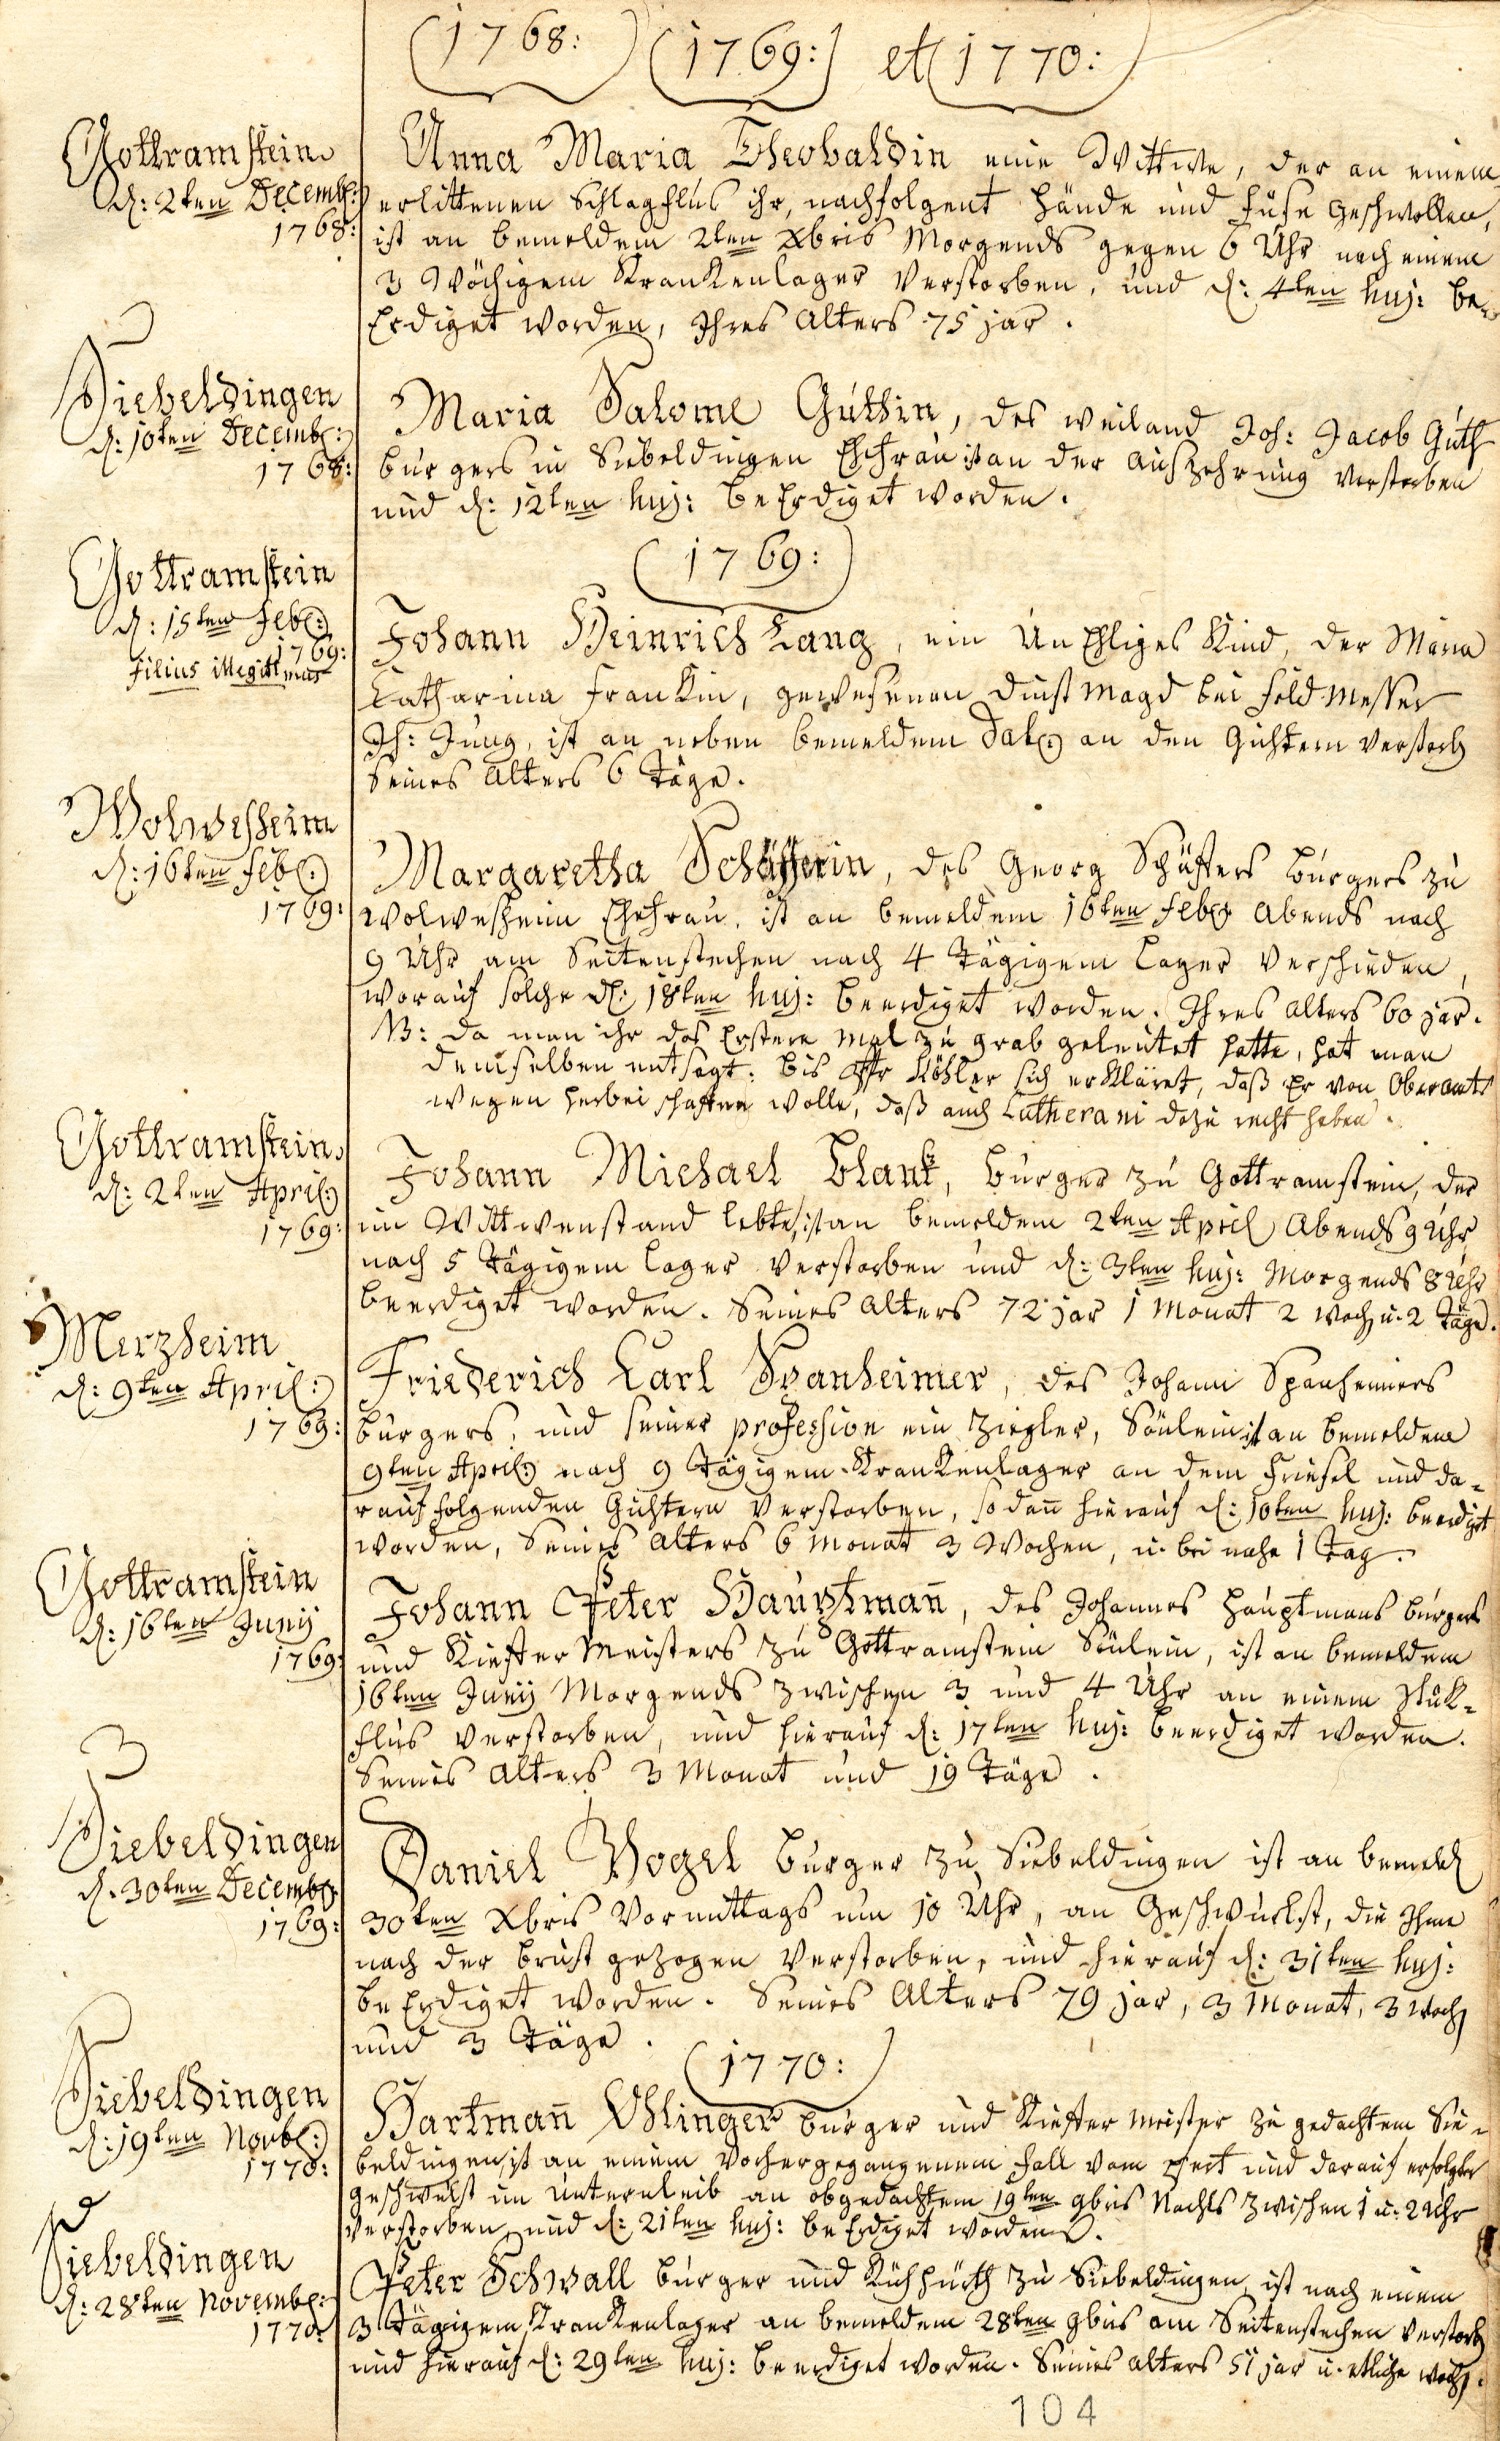 (1768:) (1769:) et (1770:)
Gottramstein
d: 2ten Decemb:
1768:
Anna Maria Theobaldin eine Wittwe, der an einem
erlittenen Schlagflus ihr, nachfolgent Hände und Füse geschwollen,
ist an bemeldem 2ten Xbris Morgends gegen 6 Uhr nach einem
3 Wöchigem Krankenlager verstorben, und d: 4ten huj: be=
Erdiget worden, Ihres Alters 75 jar.
Siebeldingen
d: 10ten Decemb:
1768:
Maria Salome Güthin, des weiland Joh: Jacob Güth
burgers in Siebeldingen Ehefrau ist an der Auszehrung verstorben
und d: 12ten huj: beErdiget worden.
(1769:)
Gottramstein
d: 15ten Feb:
1769:
Filius illegittimus
Johann Heinrich Lang, ein UnEhliges Kind, der Maria
Catharina Frankin, gewesenen dinst Magd bei Feldmesser
Jh: Jung, ist an neben bemeldem Dato an den Gichtern verstorb
seines Alters 6 Täge.
Wolwesheim
d: 16ten Feb:
1769:
Margaretha Schäfferin, des Georg Schäffers burgers zu
Wolwesheim Ehefrau, ist an bemeldem 16ten Feb: Abends nach
9 Uhr am Seitenstechen nach 4 Tägigem Lager verschieden,
worauf solche d: 18ten huj: beerdiget worden. Ihres Alters 60 jar.
NB: da man ihr das Erstere mal zu grab geleutet hatte, hat man
demselben entsagt: bis Köhler sich erkläret, daß Er von Oberamts
wegen herbei schaffen wolle, daß auch Lutherani dazu recht haben.
Gottramstein
d: 2ten April:
1769:
Johann Michael Blank, burger zu Gottramstein, der
im Wittwenstand lebte, ist an bemeldem 2ten April Abends 9 Uhr
nach 5 Tägigem Lager verstorben und d: 3ten huj: Morgends 8 Uhr
beerdiget worden. Seines Alters 72 jar 1 Monat 2 Woch u. 2 Täge.
Merzheim
d: 9ten April:
1769:
Friederich Carl Spanheimer, des Johann Spanheimers
burgers, und seiner profession ein Ziegler, Sönlein ist an bemeldem
9ten April: nach 9 Tägigem Krankenlager an dem Friesel und da=
rauf folgenden Gichtern verstorben, so dan̄ hierauf d: 10ten huj: beerdiget
worden, Seines Alters 6 Monat 3 Wochen, u. bei nahe 1 Tag.
Gottramstein
d: 16ten Junij
1769:
Johann Peter Hauptman̄, des Johannes Hauptmans burgers
und Kieffer Meisters zu Gottramstein Sönlein, ist an bemeldem
16ten Junij Morgends zwischen 3 und 4 Uhr an einem Stük=
flus verstorben, und hierauf d: 17ten huj: beerdiget worden.
Seines Alters 3 Monat und 19 Täge.
Siebeldingen
d. 30ten Decemb:
1769:
Daniel Vogel burger zu Siebeldingen ist an bemeld
30ten Xbris Vormittags um 10 Uhr, an Geschwulst, die Ihme
nach der brust gezogen verstorben, und hierauf d: 31ten huj:
beErdiget worden. Seines Alters 79 jar, 3 Monat, 3 Woch
und 3 Täge.
(1770:)
Siebeldingen
d: 19ten Novb:
1770:
Hartman̄ Ehlinger burger und Kieffer meister zu gedachtem Sie=
beldingen, ist an einem vorhergegangenem Fall vom pfert und darauf erfolgter
geschwulst im Unternleib an obgedachtem 19ten 9bris Nachts zwischen 1 u: 2 Uhr
verstorben und d: 21ten huj: beErdiget worden.
Siebeldingen
d: 28ten Novemb:
1770:
Peter Schwall burger und Kühhürth zu Siebeldingen ist nach einem
3 Tägigem Krankenlager an bemeldem 28ten 9bris am Seitenstechen verstorb
und hierauf d: 29ten huj: beerdiget worden. Seines Alters 51 jar u. etliche Woch.
104